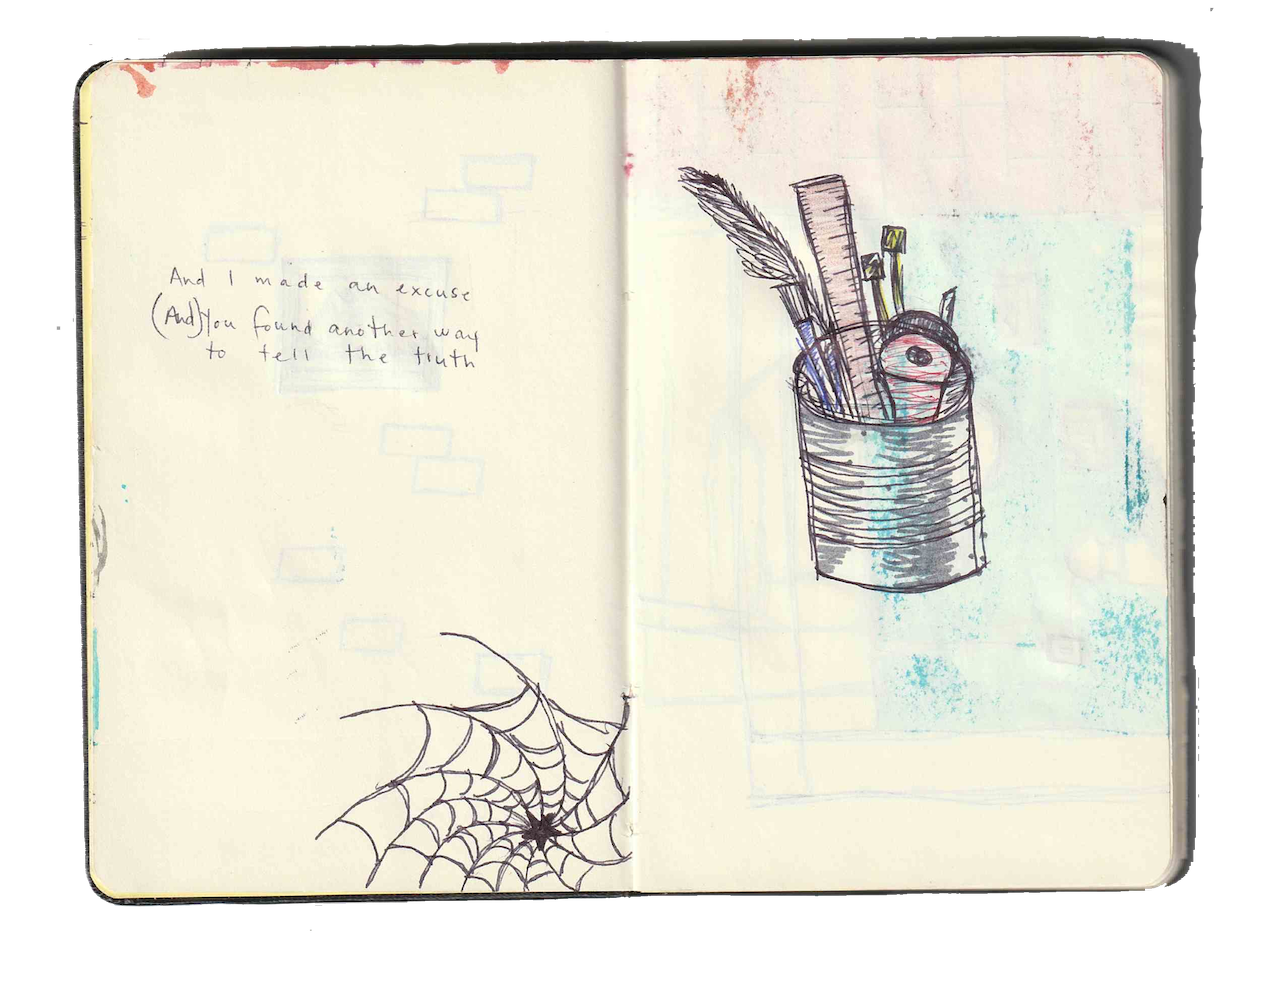 And I made an excuse
(And) You found another way
to tell the truth